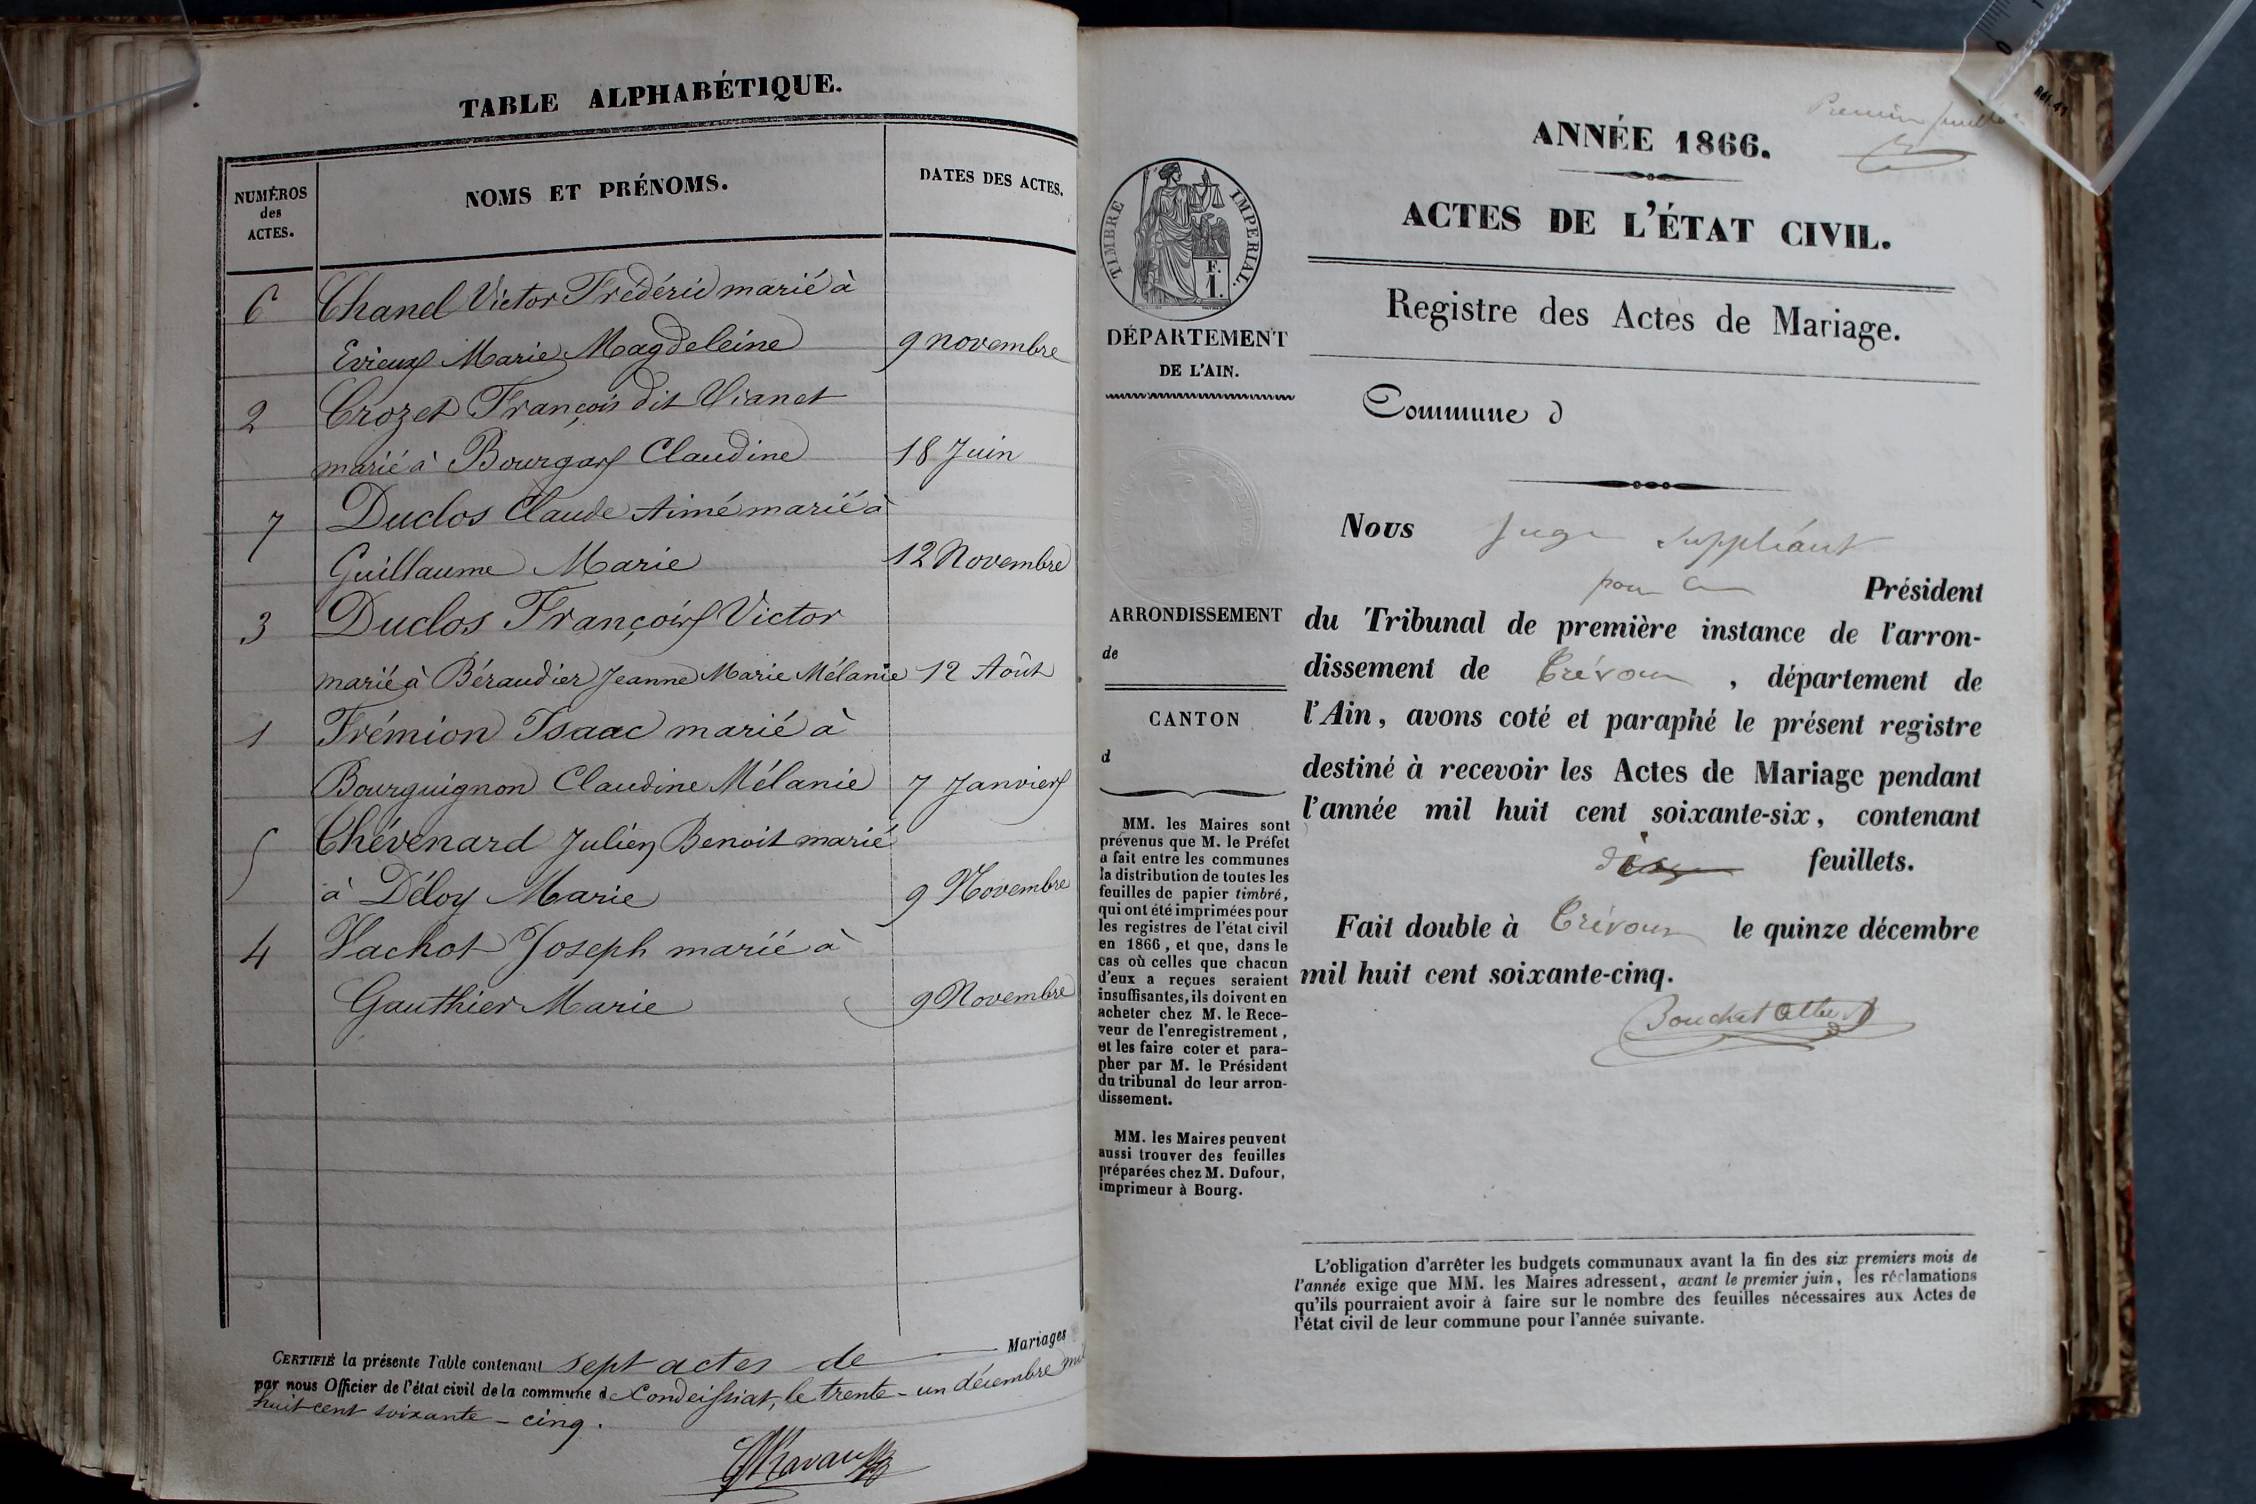 TABLE ALPHABÉTIQUE.
NUMÉROS des ACTES.
NOMS ET PRÉNOMS.
DATES DES ACTES.
6 Chanel Victor Frédéric marié à
Evieux Marie Magdeleine 9 novembre
2 Crozet François dit Vianet
marié à Bourgas Claudine 18 Juin
7 Duclos Claude Aimé marié à
Guillaume Marie 12 Novembre
3 Duclos François Victor
marié à Béraudier Jeanne Marie Mélanie 12 Août
1 Frémion Isaac marié à
Bourguignon Claudine Mélanie 7 Janvier
5 Chévenard Julien Benoit marié
à Déloy Marie 9 Novembre
4 Vachot Joseph marié à
Gauthier Marie 9 Novembre
CERTIFIÉ la présente Table contenant sept actes de Mariages
par nous Officier de l'état civil de la commune de Condeissiat, le trente-un décembre mil
huit cent soixante-cinq.
Premier feuillet
ANNÉE 1866.
ACTES DE L'ÉTAT CIVIL.
Registre des Actes de Mariage.
TIMBRE IMPERIAL.
F.
1.
DÉPARTEMENT
DE L'AIN.
ARRONDISSEMENT
de
CANTON
d
MM. les Maires sont
prévenus que M. le Préfet
a fait entre les communes
la distribution de toutes les
feuilles de papier timbré,
qui ont été imprimées pour
les registres de l'état civil
en 1866, et que, dans le
cas où celles que chacun
d'eux a reçues seraient
insuffisantes, ils doivent en
acheter chez M. le Rece-
veur de l'enregistrement,
et les faire coter et para-
pher par M. le Président
du tribunal de leur arron-
dissement.
MM. les Maires peuvent
aussi trouver des feuilles
préparées chez M. Dufour,
imprimeur à Bourg.
Commune d
Nous Juge Suppléant
pour le Président
du Tribunal de première instance de l'arron-
dissement de Trévoux, département de
l'Ain, avons coté et paraphé le présent registre
destiné à recevoir les Actes de Mariage pendant
l'année mil huit cent soixante-six, contenant
feuillets.
Fait double à Trévoux le quinze décembre
mil huit cent soixante-cinq.
L'obligation d'arrêter les budgets communaux avant la fin des six premiers mois de
l'année exige que MM. les Maires adressent, avant le premier juin, les réclamations
qu'ils pourraient avoir à faire sur le nombre des feuilles nécessaires aux Actes de
l'état civil de leur commune pour l'année suivante.
0
Réf. 41